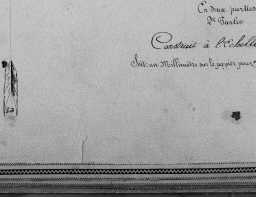 En deux parties
2e Partie
Construit à l'Echelle
Soit un Millimètre sur le papier pour